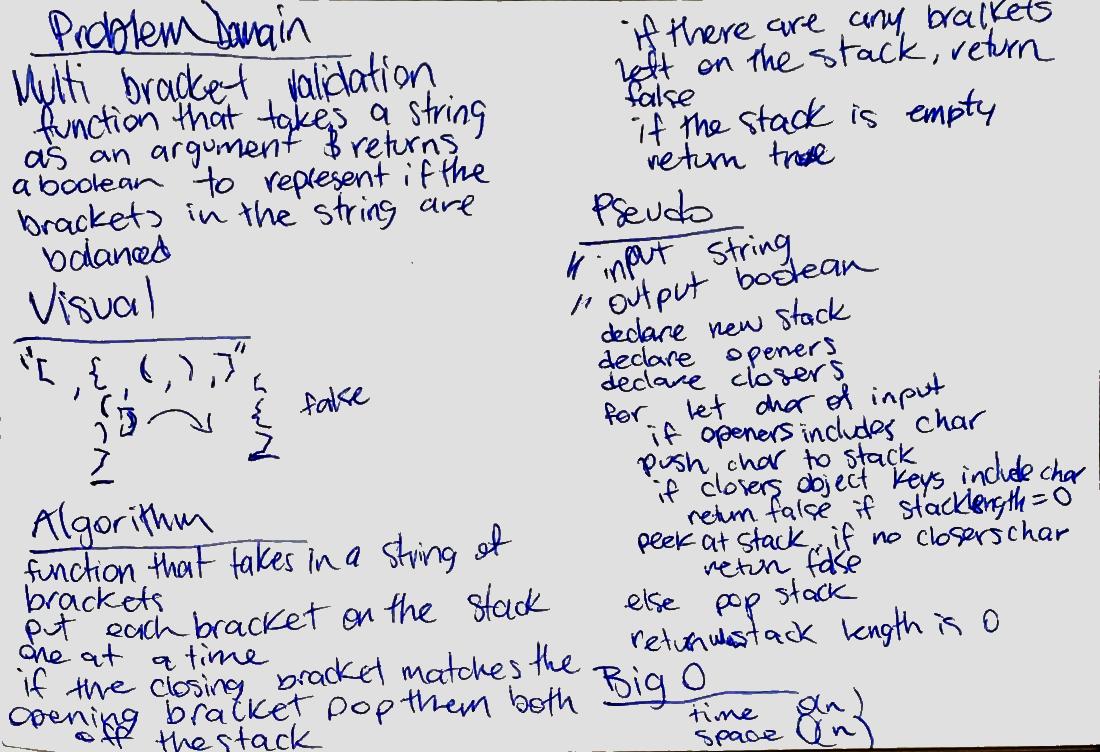 Problem Domain
Multi bracket validation
function that takes a string
as an argument & returns
a boolean to represent if the
brackets in the string are
balanced
Visual
"[ , { , ( , ) , ]"
false
Algorithm
function that takes in a string of
brackets
put each bracket on the stack
one at a time
if the closing bracket matches the
opening bracket pop them both
off the stack
if there are any brackets
left on the stack, return
false
if the stack is empty
return true
Pseudo
// input string
// output boolean
declare new stack
declare openers
declare closers
for let char of input
if openers includes char
push char to stack
if closers object keys include char
return false if stack length = 0
peek at stack, if no closers char
return false
else pop stack
return stack length is 0
Big O
time O(n)
space O(n)